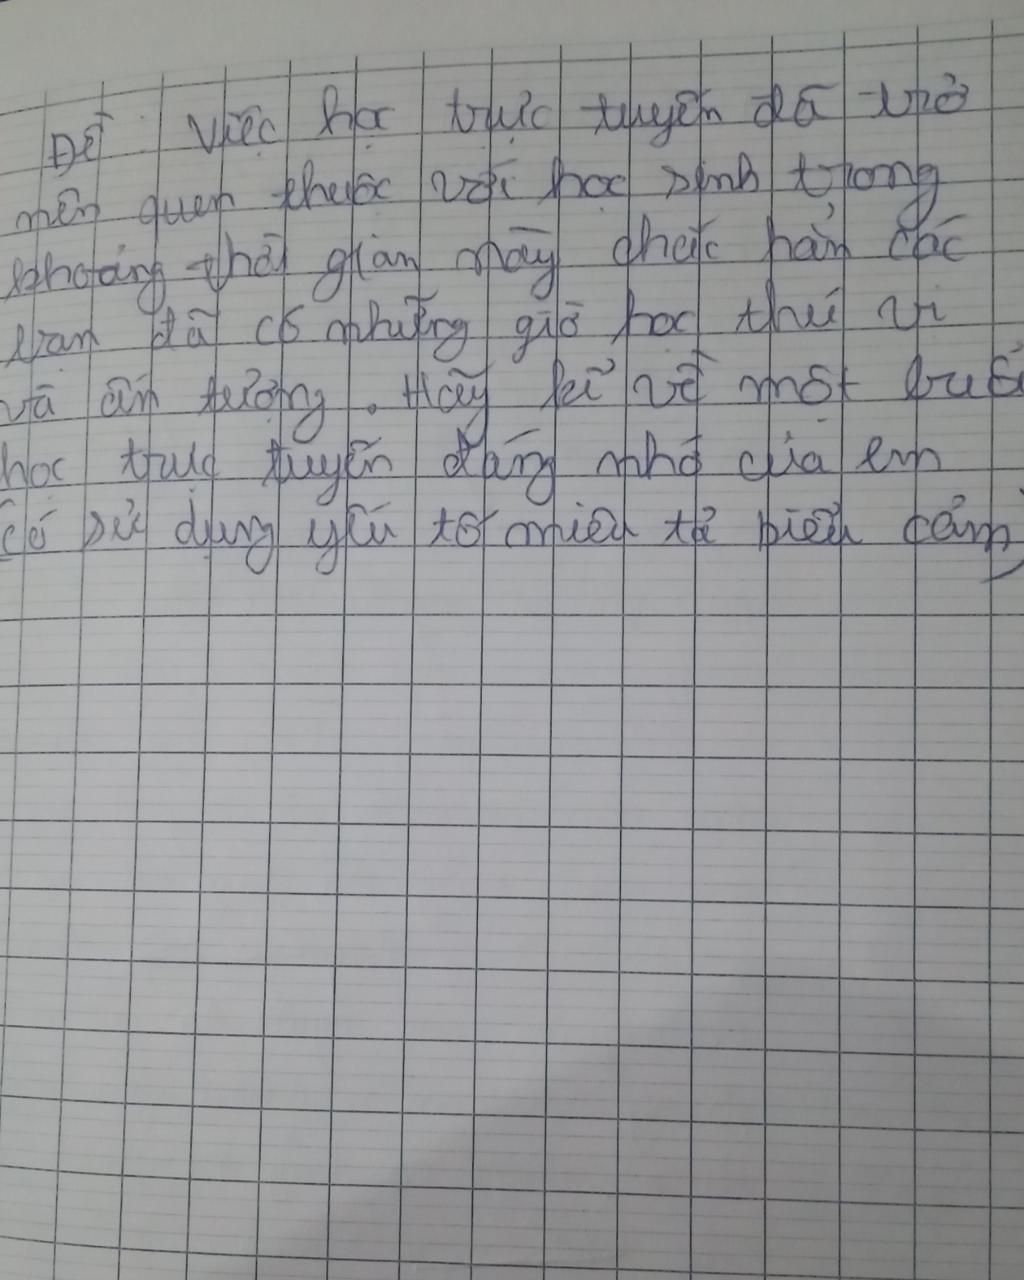 Đề: Việc học trực tuyến đã trở
nên quen thuộc với học sinh trong
khoảng thời gian này chắc hẳn các
bạn đã có những giờ học thú vị
và ấn tượng. Hãy kể về một buổi
học trực tuyến đáng nhớ của em
có sử dụng yếu tố miêu tả biểu cảm